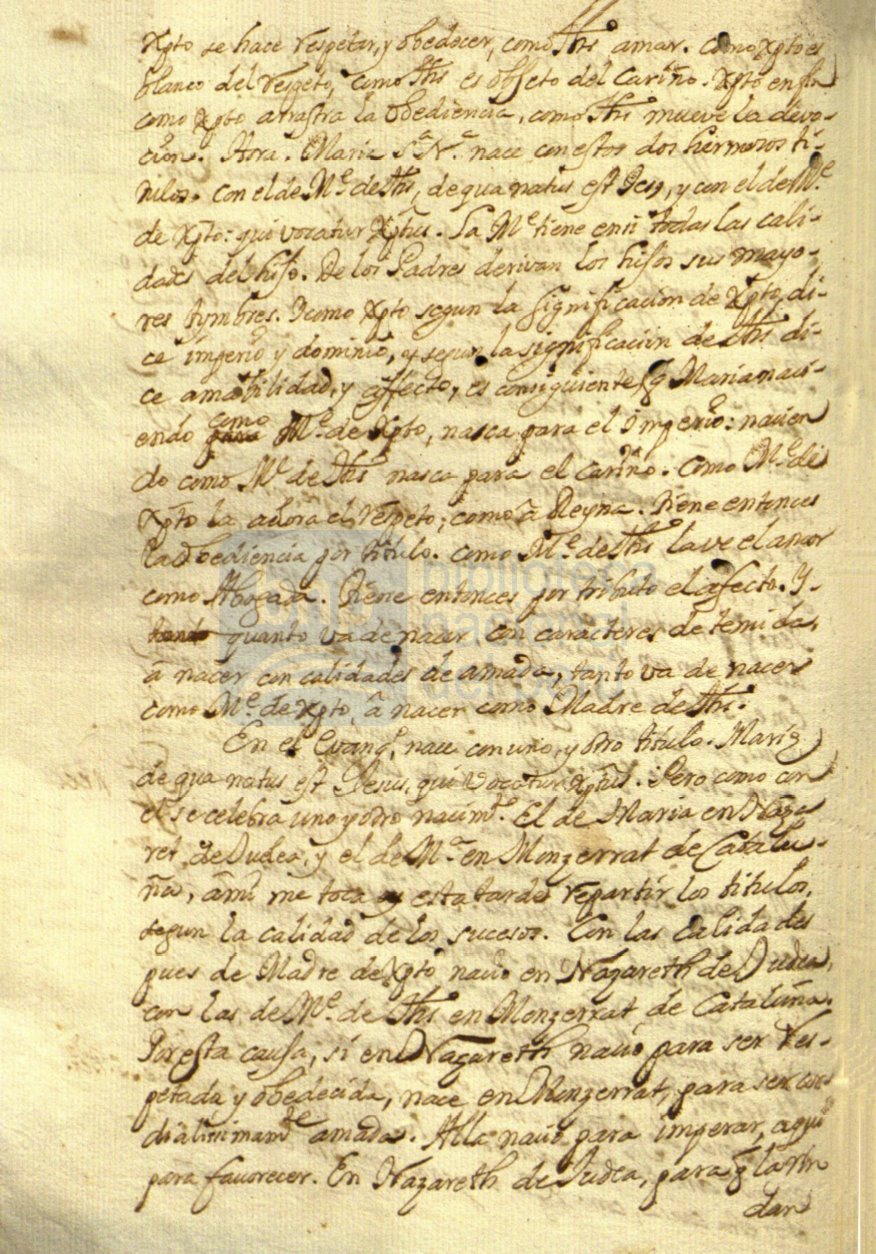 Xpto se hace respetar, y obedecer, como Ihs amar. Como Xpto es
blanco del respeto, como Ihs es objeto del cariño. Xpto en fin
como Xpto arrastra la obediencia, como Ihs mueve la devo-
cion. Hora. Maria S.ª N.ª nace con estos dos hermosos ti-
tulos. con el de M.e de Ihs, de qua natus est Iesus, y con el de M.e
de Xpto: qui vocatur Xptus. La M.e tiene en si todas las cali-
dades del hijo. De los Padres derivan los hijos sus mayo-
res tymbres. Icomo Xpto segun la significacion de Xpto, di-
ce imperio y dominio, y segun la significacion de Ihs di-
ce amabilidad, y affecto, es consiguiente q̃ Maria naci-
endo como M.e de Xpto, nasca para el imperio: nacien
do como M.e de Ihs nasca para el cariño. Como M.e de
Xpto la adora el respeto; como â Reyna. Tiene entonces
la obediencia por titulo. como M.e de Ihs la ve el amor
como Abogada. Tiene entonces por tributo el afecto. Y-
quanto va de nacer con caracteres de temida,
â nacer con calidades de amada, tanto va de nacer
como M.e de Xpto, â nacer como Madre de Ihs.
En el Evang.o nace con uno, y otro titulo. Maria
de qua natus est Iesus, qui vocatur Xptus. Pero como con
el se celebra uno y otro nacim.to. El de Maria en Naza
ret de Judea, y el de M.ª en Monzerrat de Catalu-
ña, â mi me toca esta tarde repartir los titulos,
segun la calidad de los sucesos. Con las calidades
pues de Madre de Xpto naciô en Nazareth de Judea,
con las de M.e de Ihs en Monzerrat de Cataluña.
Por esta causa, si en Nazareth naciô para ser res-
petada y obedecida, nace en Monzerrat, para ser cor-
dialissimam.te amada. Alla naciô para imperar, aqui
para favorecer. En Nazareth de Judea, para q̃ la rin
dan
biblioteca
nacional
del perú